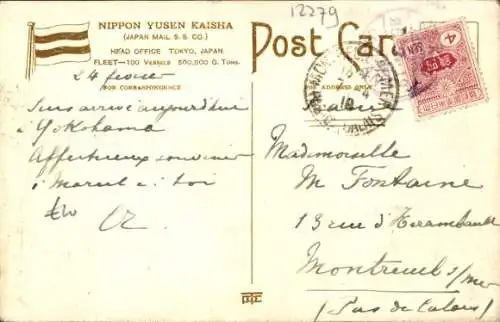 12279
NIPPON YUSEN KAISHA
(JAPAN MAIL S. S. CO.)
HEAD OFFICE TOKYO, JAPAN.
FLEET—100 VESSELS 500,000 G. TONS.
FOR CORRESPONDENCE
Post Card
ADDRESS ONLY
24 février
Suis arrivé aujourd'hui
à Yokohama
Affectueux souvenir
à Marcel et à toi
Mademoiselle
M Fontaine
13 rue d'Hérambault
Montreuil s/mer
(Pas de Calais)